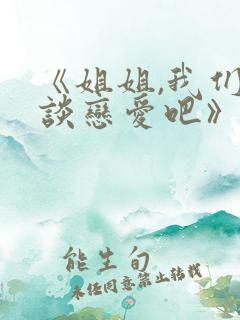 《姐姐,我们
談戀愛吧》
能生旬
未经同意禁止转载